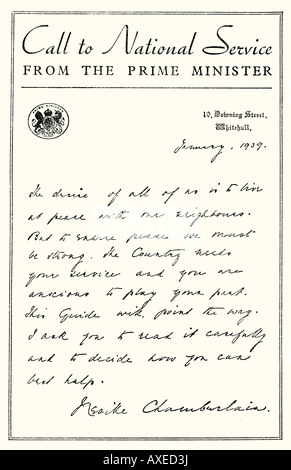 Call to National Service
FROM THE PRIME MINISTER
PRIME MINISTER
10, Downing Street,
Whitehall.
January, 1939.
The desire of all of us is to live
at peace with our neighbours.
But to ensure peace we must
be strong. The Country needs
your service and you are
anxious to play your part.
This Guide will point the way.
I ask you to read it carefully
and to decide how you can
best help.
Neville Chamberlain.
alamy
Image ID: AXED3J
www.alamy.com